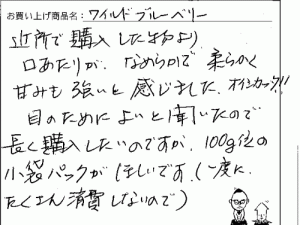 お買い上げ商品名：ワイルドブルーベリー
近所で購入した物より
口あたりが、なめらかで柔らかく
甘みも強いと感じました。オイシカッタ!!
目のために よいと聞いたので
長く購入したいのですが、100g位の
小袋パックがほしいです。(一度に
たくさん消費しないので)